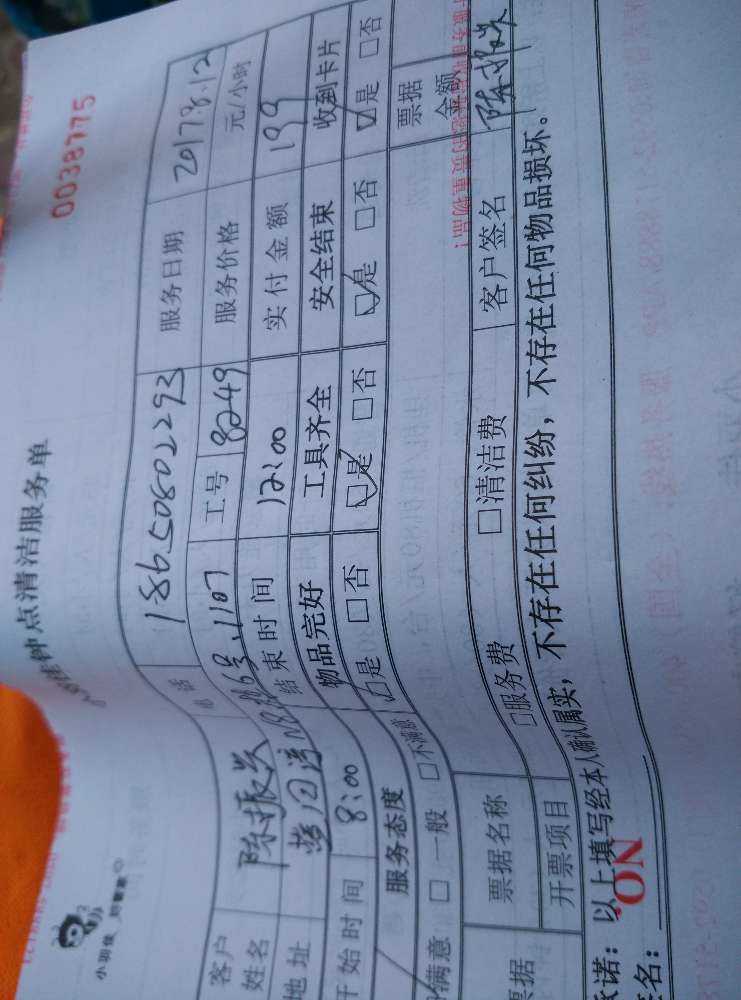 钟点清洁服务单
0038775
客户姓名 陈振兴 电话 18650802293 服务日期 2017.8.12
地址 6号.1107 工号 8249 服务价格 元/小时
开始时间 8:00 结束时间 12:00 实付金额 199
服务态度 物品完好 工具齐全 安全结束 收到卡片
满意 □一般 □不满意 ☑是 □否 ☑是 □否 ☑是 □否 ☑是 □否
票据 票据名称 票据金额
开票项目 □服务费 □清洁费 客户签名 陈振兴
承诺：以上填写经本人确认属实，不存在任何纠纷，不存在任何物品损坏。
签名：
NO.